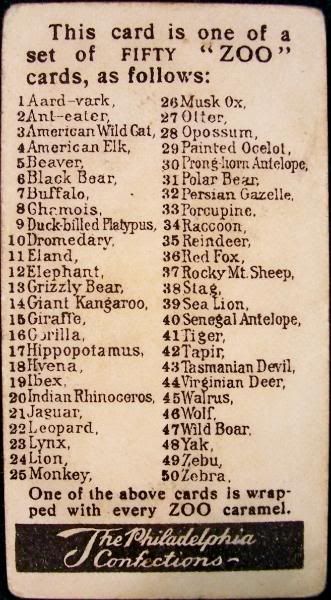 This card is one of a
set of FIFTY "ZOO"
cards, as follows:
1 Aard-vark,
2 Ant-eater,
3 American Wild Cat,
4 American Elk,
5 Beaver,
6 Black Bear,
7 Buffalo,
8 Chamois,
9 Duck-billed Platypus,
10 Dromedary,
11 Eland,
12 Elephant,
13 Grizzly Bear,
14 Giant Kangaroo,
15 Giraffe,
16 Gorilla,
17 Hippopotamus,
18 Hyena,
19 Ibex,
20 Indian Rhinoceros,
21 Jaguar,
22 Leopard,
23 Lynx,
24 Lion,
25 Monkey,
26 Musk Ox,
27 Otter,
28 Opossum,
29 Painted Ocelot,
30 Prong-horn Antelope,
31 Polar Bear,
32 Persian Gazelle,
33 Porcupine,
34 Raccoon,
35 Reindeer,
36 Red Fox,
37 Rocky Mt. Sheep,
38 Stag,
39 Sea Lion,
40 Senegal Antelope,
41 Tiger,
42 Tapir,
43 Tasmanian Devil,
44 Virginian Deer,
45 Walrus,
46 Wolf,
47 Wild Boar,
48 Yak,
49 Zebu,
50 Zebra.
One of the above cards is wrap-
ped with every ZOO caramel.
The Philadelphia
Confections